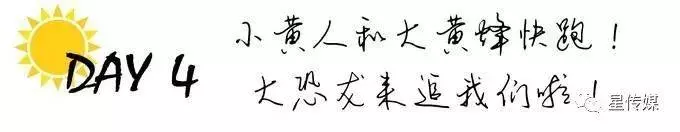 DAY 4
小黄人和大黄蜂快跑！
大恐龙来追我们啦！
星传媒